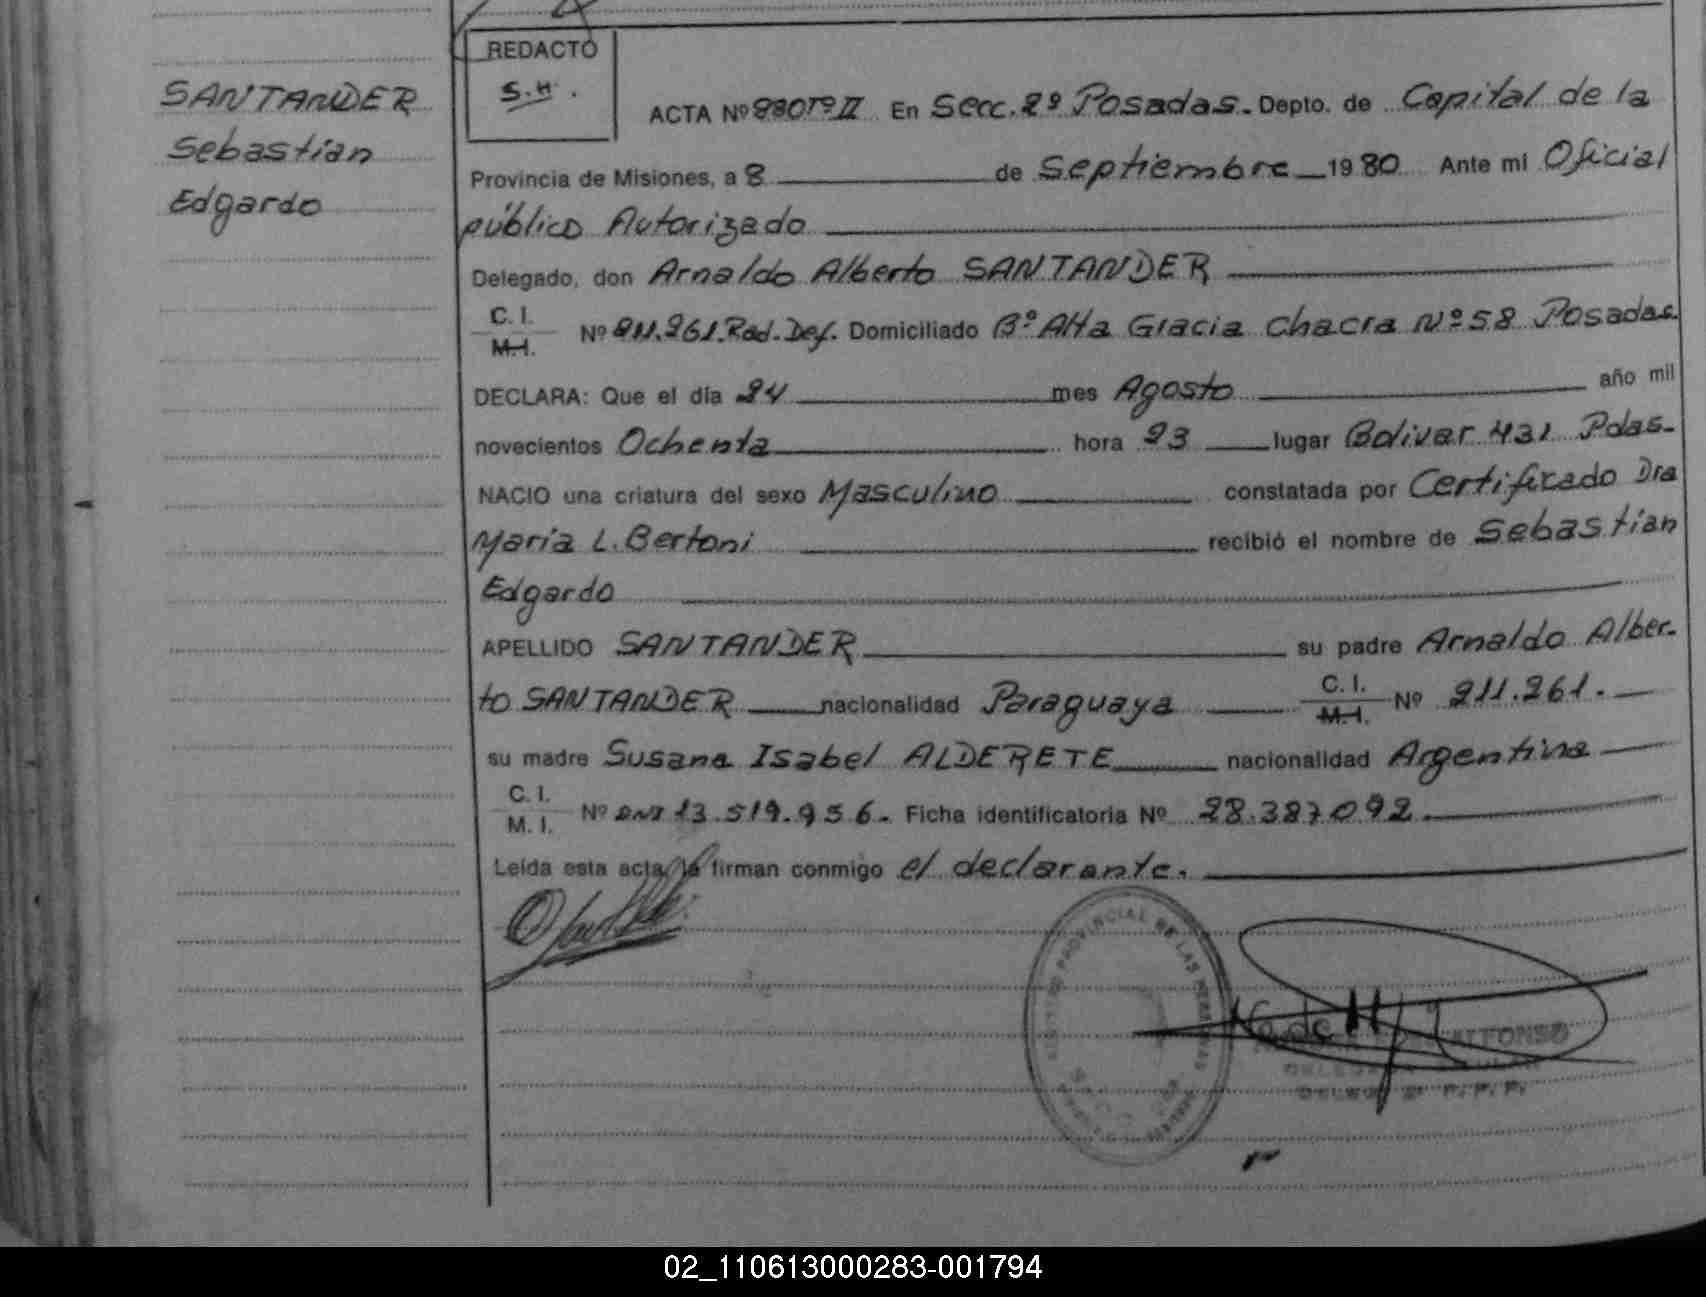 SANTANDER
Sebastian
Edgardo
REDACTÓ
S.H.
ACTA Nº 880 Tº II En Secc. 2º Posadas. Depto. de Capital de la
Provincia de Misiones, a 8 de Septiembre 1980 Ante mi Oficial
público Autorizado
Delegado, don Arnaldo Alberto SANTANDER
C. I.
M. I.
Nº 211.261. Rad. Def. Domiciliado Bº Alta Gracia Chacra Nº 58 Posadas.
DECLARA: Que el día 24 mes Agosto año mil
novecientos Ochenta hora 23 lugar Bolivar 431 Pdas.
NACIO una criatura del sexo Masculino constatada por Certificado Dra
Maria L. Bertoni recibió el nombre de Sebastian
Edgardo
APELLIDO SANTANDER su padre Arnaldo Alber-
to SANTANDER nacionalidad Paraguaya C. I. M. I. Nº 211.261.
su madre Susana Isabel ALDERETE nacionalidad Argentina
C. I.
M. I.
Nº DNI 13.519.956. Ficha identificatoria Nº 28.387.092
Leída esta acta la firman conmigo el declarante.
REGISTRO PROVINCIAL DE LAS PERSONAS
ALFONSO
DELEGADA TITULAR
02_110613000283-001794